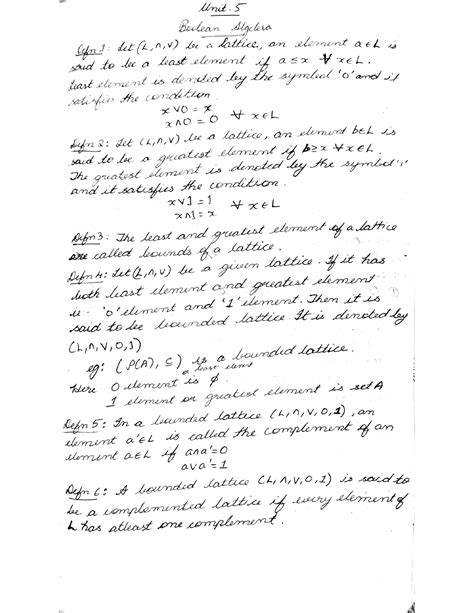 Unit. 5
Boolean Algebra
Defn 1: Let (L,∧,∨) be a lattice, an element a∈L is
said to be a least element if a≤x ∀ x∈L.
Least element is denoted by the symbol '0' and it
satisfies the condition
x∨0 = x
x∧0 = 0 ∀ x∈L
Defn 2: Let (L,∧,∨) be a lattice, an element b∈L is
said to be a greatest element if b≥x ∀ x∈L.
The greatest element is denoted by the symbol '1'
and it satisfies the condition.
x∨1 = 1
x∧1 = x ∀ x∈L
Defn 3: The least and greatest element of a lattice
are called bounds of a lattice.
Defn 4: Let (L,∧,∨) be a given lattice. If it has
both least element and greatest element
ie. '0' element and '1' element. Then it is
said to be bounded lattice. It is denoted by
(L,∧,∨,0,1)
eg: (P(A), ⊆) is a bounded lattice.
Here 0 element is a least elemt ϕ.
1 element or greatest element is set A
Defn 5: In a bounded lattice (L,∧,∨,0,1), an
element a'∈L is called the complement of an
element a∈L if a∧a'=0
a∨a'=1
Defn 6: A bounded lattice (L,∧,∨,0,1) is said to
be a complemented lattice if every element of
L has atleast one complement.